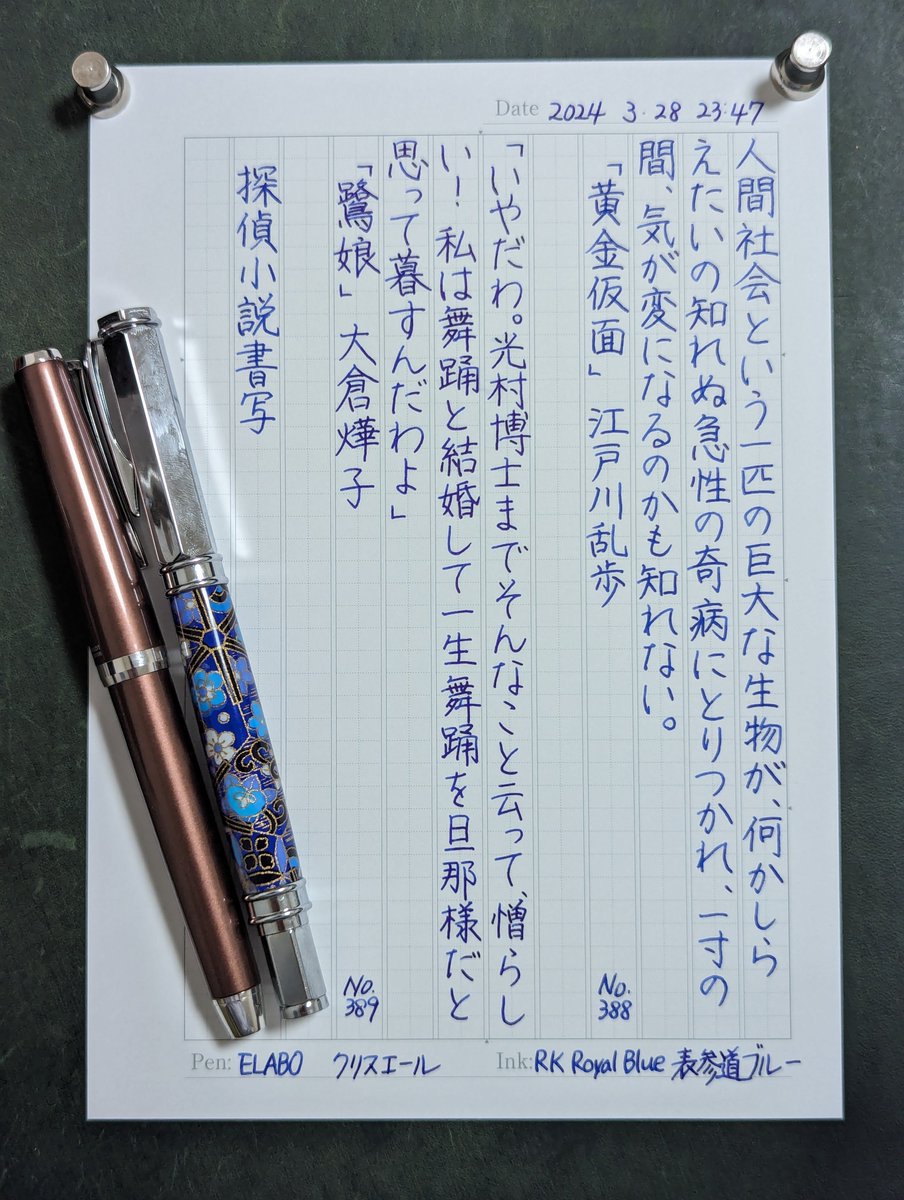 Date 2024 3.28 23:47
人間社会という一匹の巨大な生物が、何かしら
えたいの知れぬ急性の奇病にとりつかれ、一寸の
間、気が変になるのかも知れない。
「黄金仮面」 江戸川乱歩 No.388
「いやだわ。光村博士までそんなこと云って、憎らし
い! 私は舞踊と結婚して一生舞踊を旦那様だと
思って暮すんだわよ」
「鷺娘」大倉燁子 No.389
探偵小説書写
Pen: ELABO クリスエール
Ink: RK Royal Blue 表参道ブルー